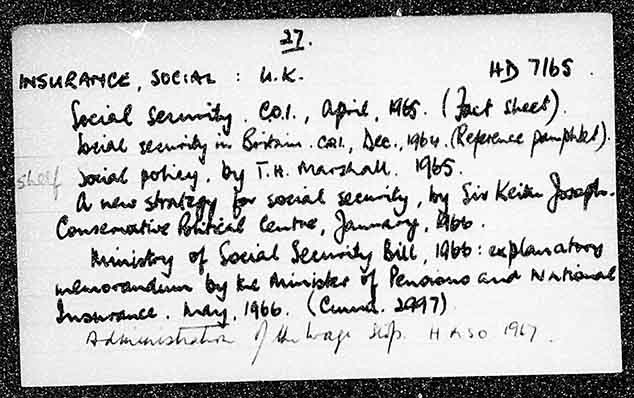 27.
INSURANCE, SOCIAL : U.K. HD 7165.
Social security. C.O.I., April, 1965. (Fact sheet).
Social security in Britain. C.O.I., Dec., 1964. (Reference pamphlet).
shelf Social policy, by T.H. Marshall. 1965.
A new strategy for social security, by Sir Keith Joseph.
Conservative Political Centre, January, 1966.
Ministry of Social Security Bill, 1966: explanatory
memorandum by the Minister of Pensions and National
Insurance. May, 1966. (Cmnd. 2997)
Administration of the Wage Stop. HMSO 1967.